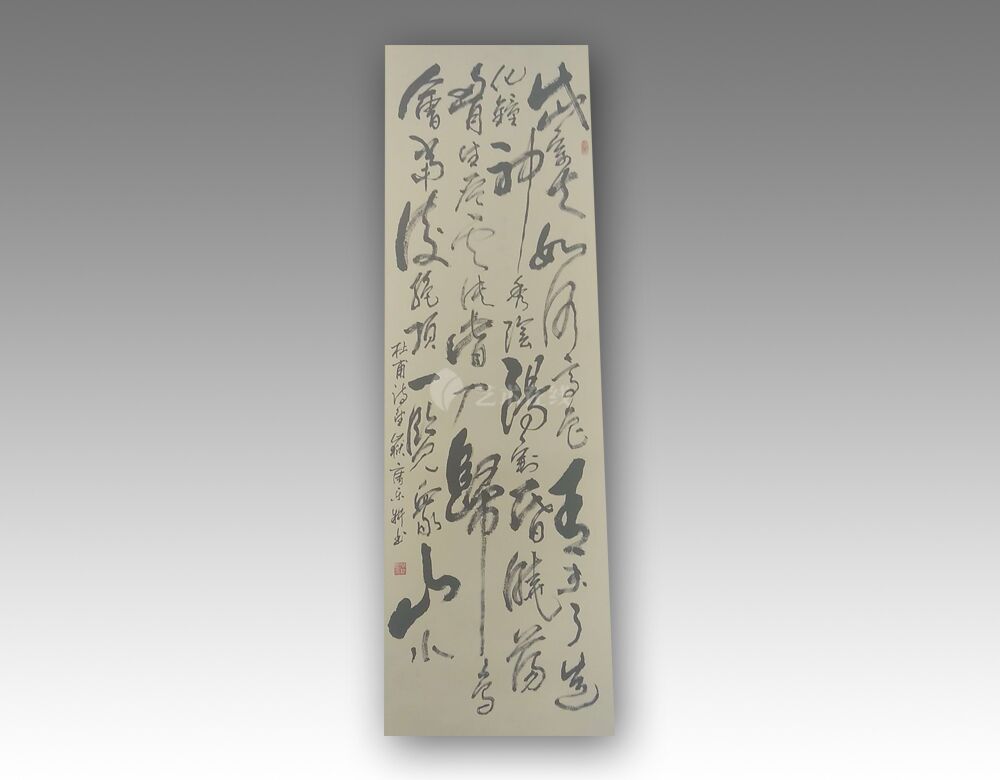 岱宗夫如何齊魯青未了造
化鐘神秀陰陽割昏曉蕩
胸生层雲決眥入歸鳥
會當凌絕頂一覽眾山小
杜甫诗望嶽 书